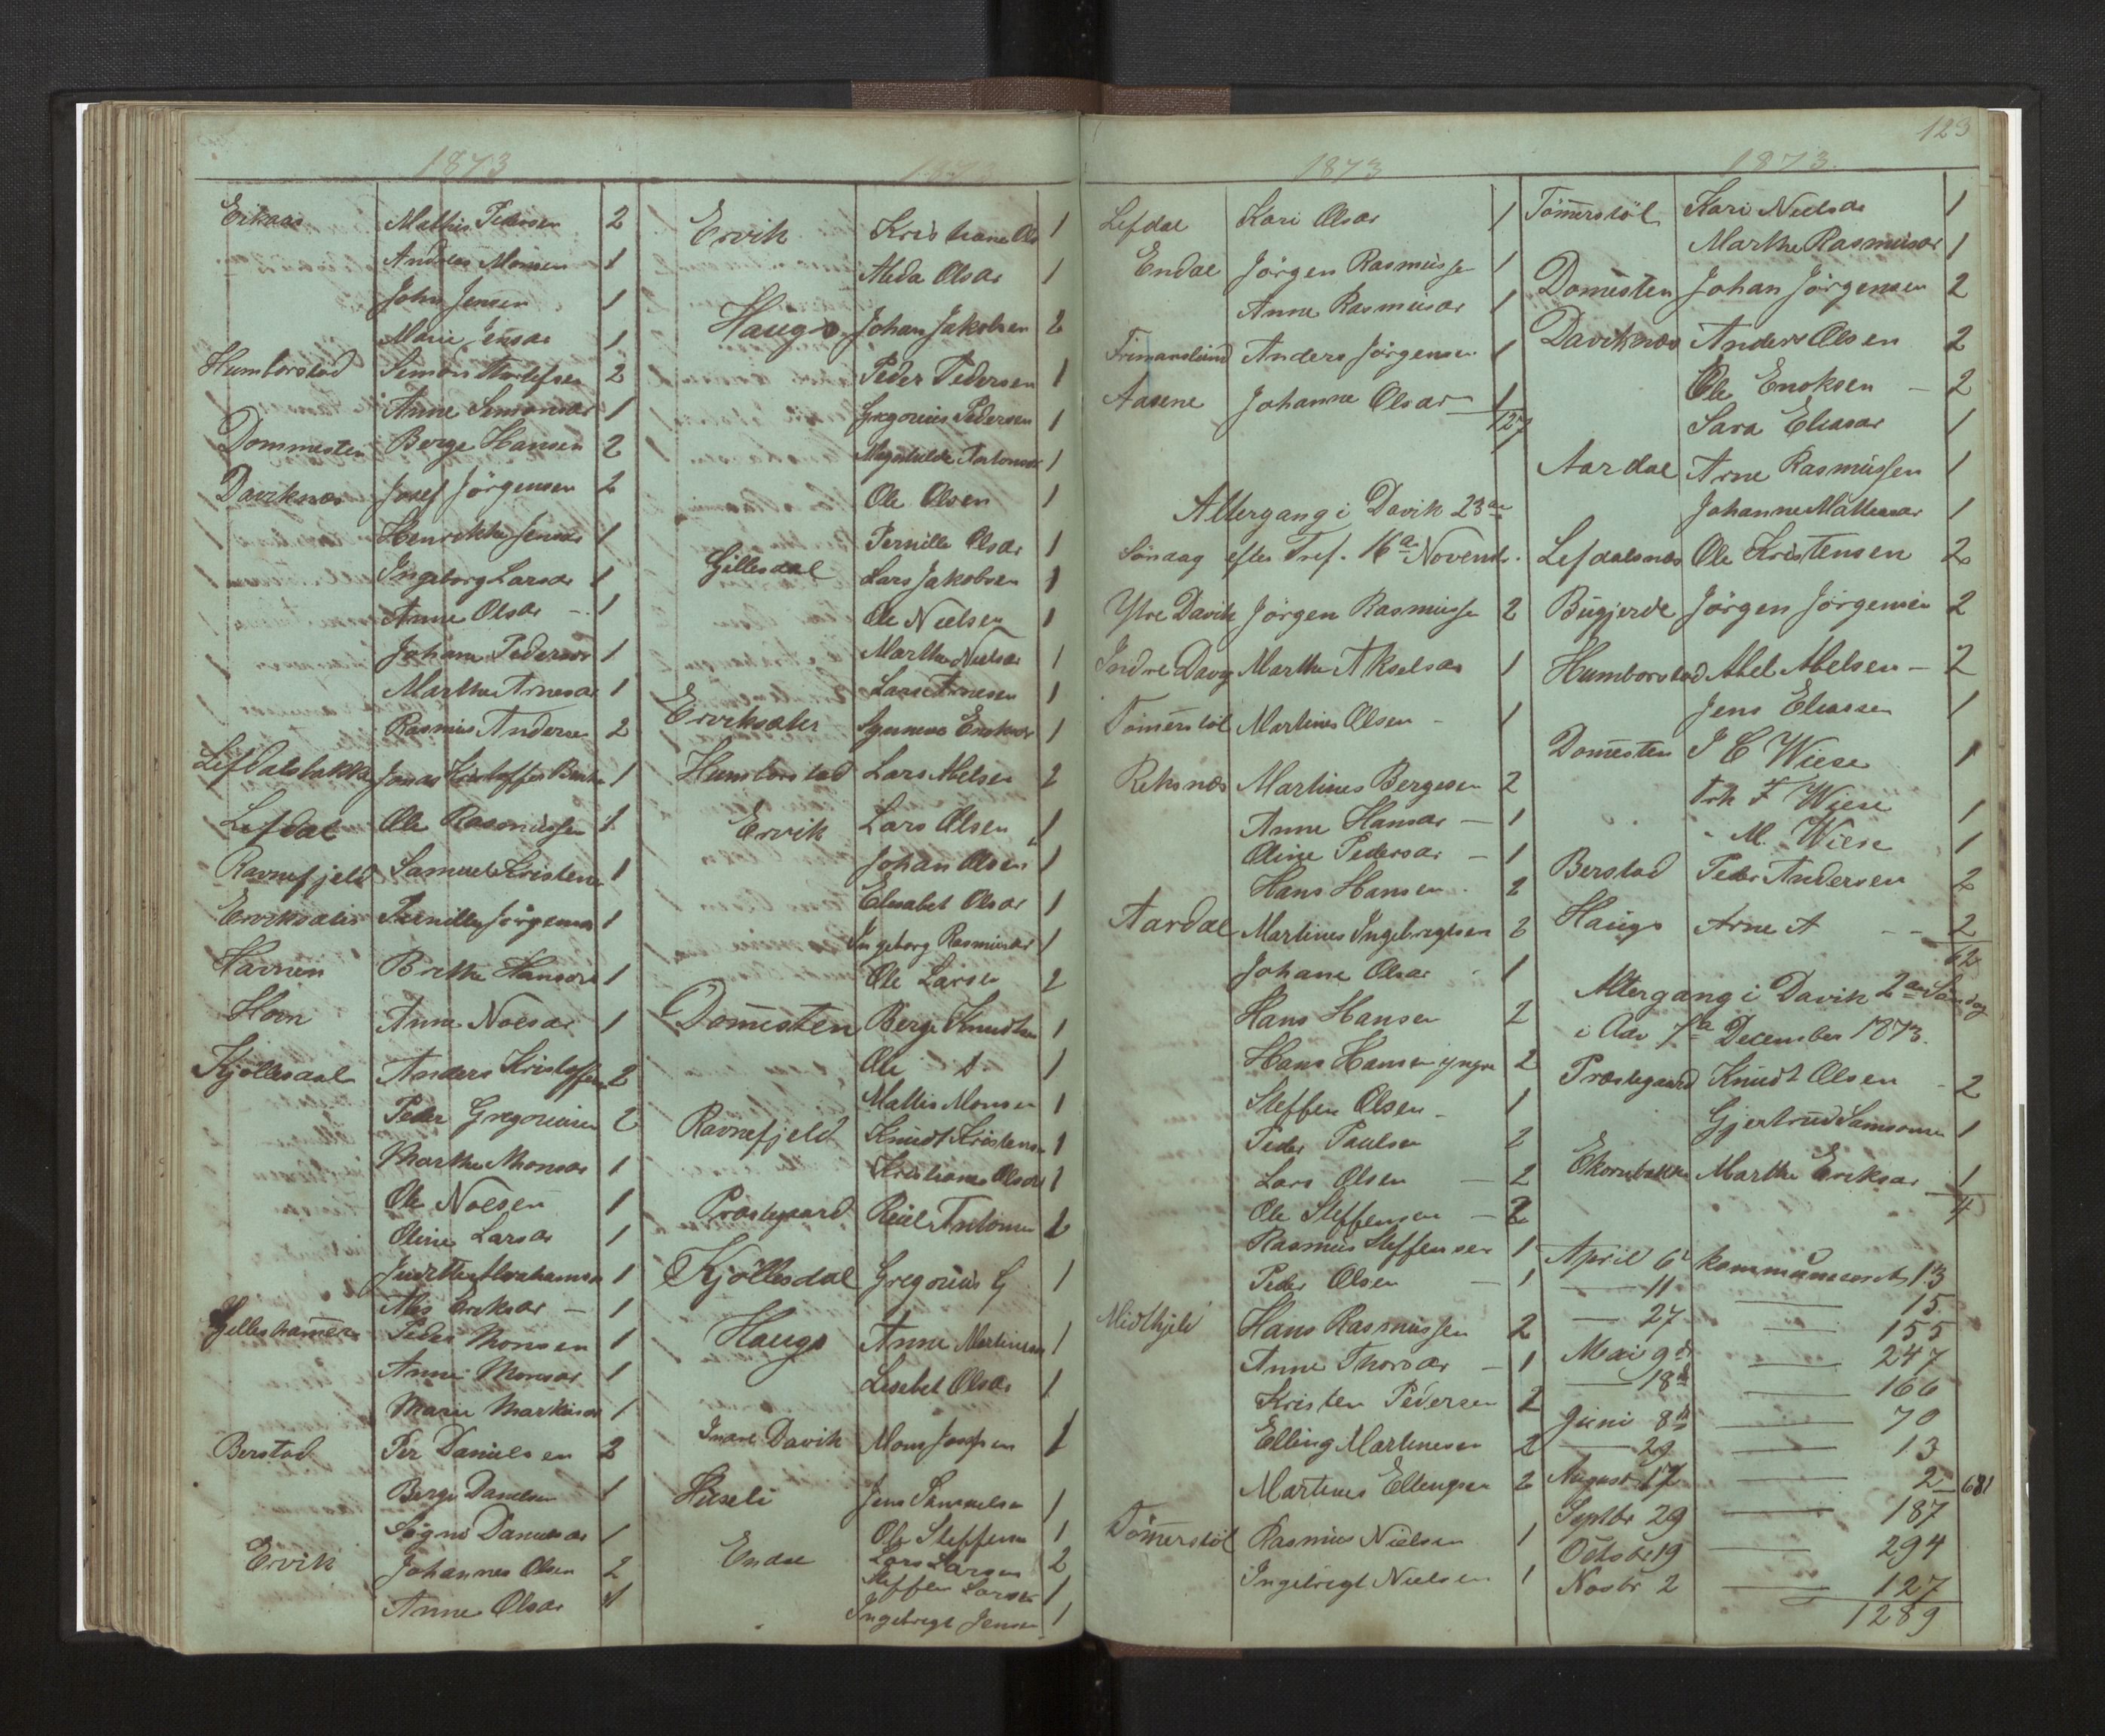 1873
Eikaas Mathis Pedersen 2
Andreas Monsen 1
John Jensen 1
Marie Jensdr 1
Humborstad Simon Thorlefsen 2
Anne Simonsdr 1
Dommesten Berge Hansen 2
Daviknæs Josef Jörgensen 2
Henrikke Jensdr 1
Ingeborg Larsdr 1
Anne Olsdr - 1
Johane Pedersdr 1
Marthe Arnesdr 1
Rasmus Andersen 2
Lefdalsbakke Jonas Kristoffer 1
Lefdal Ole Rasmussen 1
Ravnefjeld Samuel Kristens 1
Erviksæter Pernille Jörgensd 1
Havnen Brithe Hansdr 1
Horn Anne Noesdr 1
Kjöllesdal Anders Kristoffersen 2
Peder Gregoriusen 2
Marthe Monsdr 1
Ole Noesen 1
Oline Larsdr 1
Abrahamsd 1
Eriksdr - 1
Gilleshammer Peder Monsen 1
Anne Monsdr 1
Marie Markusdr 1
Berstad Per Danielsen 2
Berge Danielsen 1
Signe Danielsdr 1
Ervik Johannes Olsen 2
Anne Olsdr 1
1873
Ervik Kristiane Ols 1
Alida Olsdr 1
Hauge Johan Jakobsen 2
Peder Pedersen 1
Gregorius Pedersen 1
Magnhilde Antonsdr 1
Ole Olsen 1
Pernille Olsdr 1
Gillesdal Lars Jakobsen 1
Ole Nielsen 1
Marthe Nielsdr 1
Lars Arnesen 1
Erviksæter Synneve Enoksdr 1
Humborstad Lars Abelsen 2
Ervik Lars Olsen 1
Johan Olsen 1
Elisabet Olsdr 1
Ingeborg Rasmusdr 1
Ole Larsen 2
Dom̄esten Berge Knudtsen 1
Ole D 1
Mathis Monsen 1
Ravnefjeld Knudt Kristensen 1
Kristiane Olsdr 1
Præstegaard Antonsen 1
Kjöllesdal Gregorius G 1
Hauge Anne Martinusdr 1
Lisebet Olsdr 1
Indre Davik Mons Josefsen 1
Huseli Jens Samuelsen 1
Ole Steffensen 1
Endal Lars Larsen 2
Steffen Larsen 1
Ingebregt Jensen 1
123
1873
Lefdal Kari Olsdr 1
Endal Jörgen Rasmussen 1
Anne Rasmusdr 1
Frimanslund Anders Jörgensen 1
Aasene Johanne Olsdr 1
127
Altergang i Davik 23de
Söndag efter Tref. 16de Novembr.
Ytre Davik Jörgen Rasmussen 2
Indre Davig Marthe Akselsdr 1
Tömerstöl Martinus Olsen - 1
Reksnæs Martinus Bergesen 2
Anne Hansdr - 1
Oline Pedersdr - 1
Hans Hansen 2
Aardal Martinus Ingebregtsen 2
Johane Olsdr 1
Hans Hansen 2
Hans Hansen yngre 2
Steffen Olsen - 1
Peder Paulsen 2
Lars Olsen - 2
Ole Steffensen - 2
Rasmus Steffensen 1
Peder Olsen - 1
Midthjeld Hans Rasmussen 2
Anne Thorsdr - 1
Kristen Pedersen 2
Elling Martinusen 2
Martinus Ellingsen 2
Tömerstöl Rasmus Nielsen 1
Ingebregt Nielsen 1
1873.
Tömerstöl Kari Nielsdr 1
Marthe Rasmusdr 1
Domesten Johan Jörgensen 2
Daviknæs Anders Olsen 2
Ole Enoksen - 2
Sara Eliasdr 1
Aardal Arne Rasmussen 1
Johanne Mathiasdr 1
Lefdalsnæs Ole Kristensen 2
Bugjerde Jörgen Jörgensen 2
Humborstad Abel Abelsen - 2
Jens Eliassen 1
Domesten J C Wiese 1
Frk F Wiese 1
" M. Wiese 1
Berstad Peder Andersen 2
Hauge Arne A - - 2
62
Altergang i Davik 2den Söndag
i Adv 7de December 1873.
Præstegaard Knudt Olsen - 2
Gjertrud Samsonsen 1
Ekornbakke Marthe Eriksdr 1
4
April 6te kommuniceret 13
— 11 — 15
— 27 — 155
Mai 9de — 247
— 18de — 166
Juni 8de — 70
— 29 — 13
August 17 — 2 681
Septbr 29 — 187
Octobr 19 — 294
Novbr 2 — 127
1289